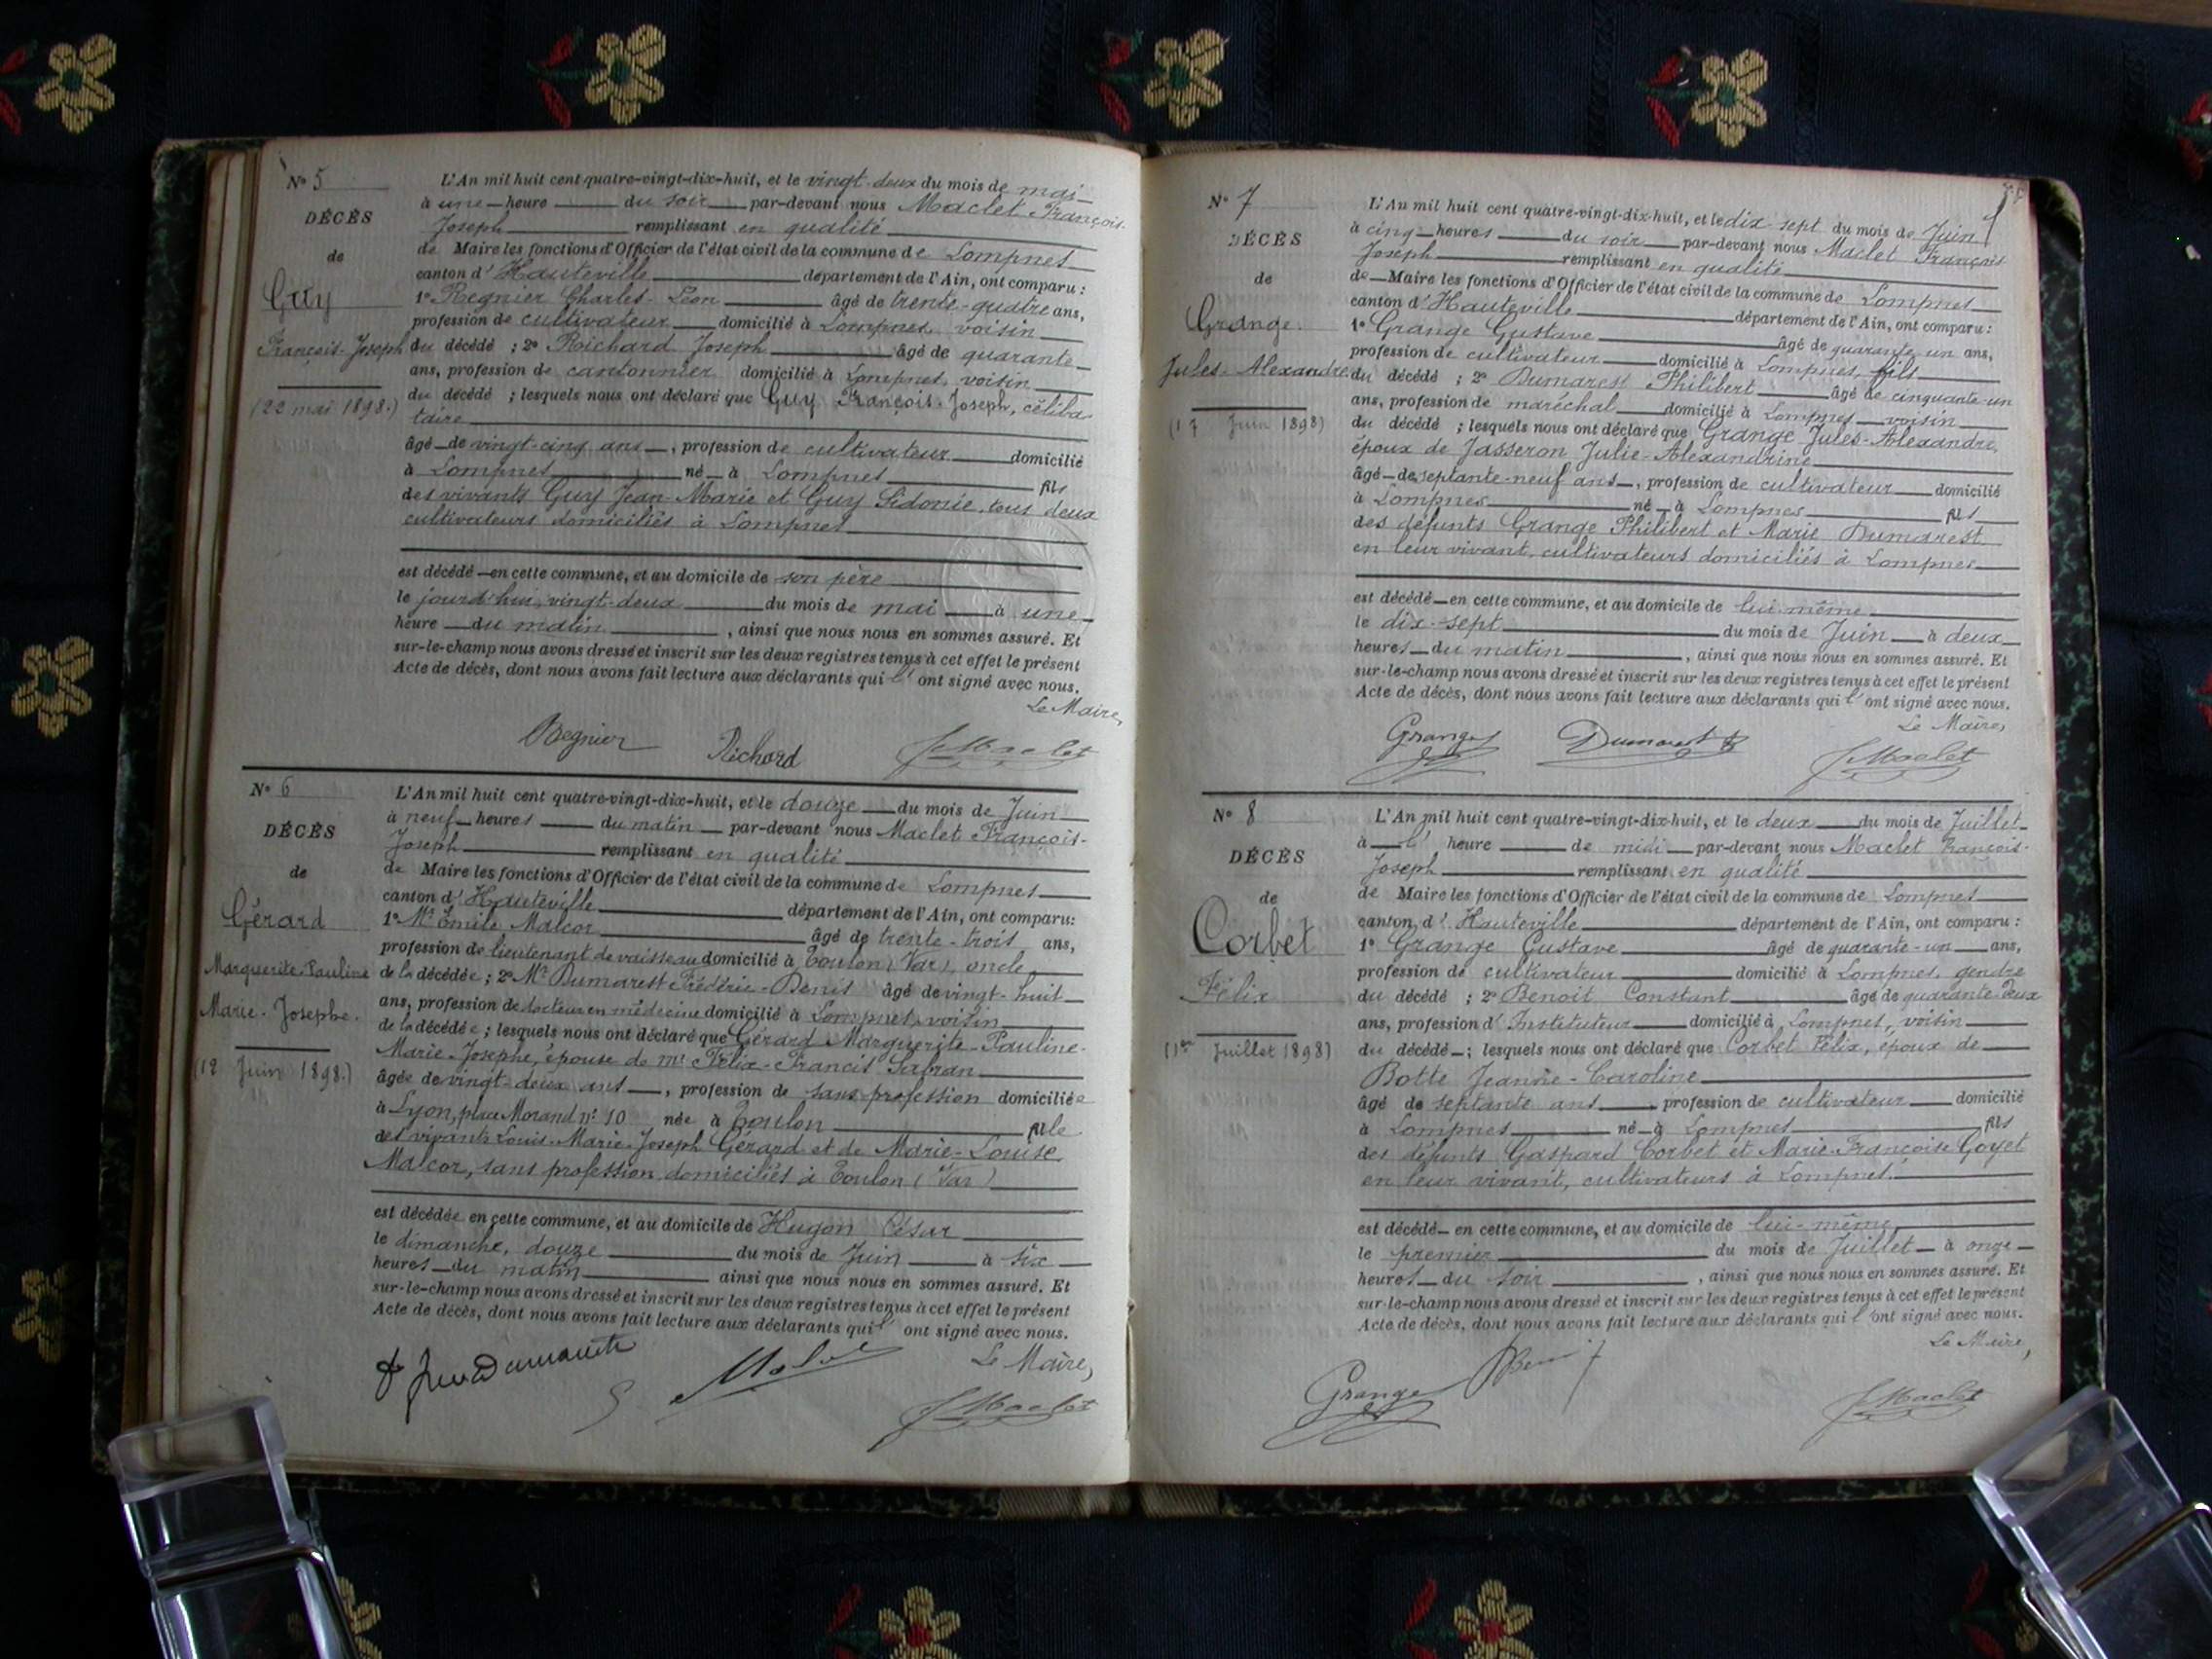 N° 5
DÉCÈS
de
Guy
François-Joseph
(22 mai 1898.)
L'An mil huit cent quatre-vingt-dix-huit, et le vingt-deux du mois de mai
à une heure du soir par-devant nous Maclet François-
Joseph remplissant en qualité
de Maire les fonctions d'Officier de l'état civil de la commune de Lompnes
canton d'Hauteville département de l'Ain, ont comparu :
1° Regnier Charles-Léon âgé de trente-quatre ans,
profession de cultivateur domicilié à Lompnes, voisin
du décédé ; 2° Richard Joseph âgé de quarante
ans, profession de cantonnier domicilié à Lompnes, voisin
du décédé ; lesquels nous ont déclaré que Guy François-Joseph, céliba-
taire
âgé de vingt-cinq ans, profession de cultivateur domicilié
à Lompnes né à Lompnes fils
des vivants Guy Jean-Marie et Guy Sidonie, tous deux
cultivateurs domiciliés à Lompnes
est décédé en cette commune, et au domicile de son père
le jourd'hui, vingt-deux du mois de mai à une
heure du matin, ainsi que nous nous en sommes assuré. Et
sur-le-champ nous avons dressé et inscrit sur les deux registres tenus à cet effet le présent
Acte de décès, dont nous avons fait lecture aux déclarants qui l'ont signé avec nous.
Le Maire,
Regnier Richard J Maclet
N° 6
DÉCÈS
de
Gérard
Marguerite-Pauline
Marie-Josephe.
(12 Juin 1898.)
L'An mil huit cent quatre-vingt-dix-huit, et le douze du mois de Juin
à neuf heures du matin par-devant nous Maclet François-
Joseph remplissant en qualité
de Maire les fonctions d'Officier de l'état civil de la commune de Lompnes
canton d'Hauteville département de l'Ain, ont comparu:
1° Mr Emile Malcor âgé de trente-trois ans,
profession de lieutenant de vaisseau domicilié à Toulon (Var), oncle
de la décédée ; 2° Mr Dumarest Frédéric-Denis âgé de vingt-huit
ans, profession de docteur en médecine domicilié à Lompnes, voisin
de la décédée ; lesquels nous ont déclaré que Gérard Marguerite-Pauline-
Marie-Josephe, épouse de mr Félix-Francis Safran
âgée de vingt-deux ans, profession de sans profession domiciliée
à Lyon, place Morand n° 10 née à Toulon fille
des vivants Louis-Marie-Joseph Gérard et de Marie-Louise
Malcor, sans profession domiciliés à Toulon (Var)
est décédée en cette commune, et au domicile de Hugon César
le dimanche, douze du mois de Juin à six
heures du matin ainsi que nous nous en sommes assuré. Et
sur-le-champ nous avons dressé et inscrit sur les deux registres tenus à cet effet le présent
Acte de décès, dont nous avons fait lecture aux déclarants qui l'ont signé avec nous.
Le Maire,
J Maclet
N° 7
DÉCÈS
de
Grange.
Jules-Alexandre
(17 Juin 1898)
L'An mil huit cent quatre-vingt-dix-huit, et le dix sept du mois de Juin
à cinq heures du soir par-devant nous Maclet François
Joseph remplissant en qualité
de Maire les fonctions d'Officier de l'état civil de la commune de Lompnes
canton d'Hauteville département de l'Ain, ont comparu :
1° Grange Gustave âgé de quarante un ans,
profession de cultivateur domicilié à Lompnes, fils
du décédé ; 2° Dumarest Philibert âgé de cinquante-un
ans, profession de maréchal domicilié à Lompnes voisin
du décédé ; lesquels nous ont déclaré que Grange Jules-Alexandre,
époux de Jasseron Julie-Alexandrine
âgé de septante-neuf ans, profession de cultivateur domicilié
à Lompnes né à Lompnes fils
des défunts Grange Philibert et Marie Dumarest
en leur vivant, cultivateurs domiciliés à Lompnes
est décédé en cette commune, et au domicile de lui-même
le dix-sept du mois de Juin à deux
heures du matin, ainsi que nous nous en sommes assuré. Et
sur-le-champ nous avons dressé et inscrit sur les deux registres tenus à cet effet le présent
Acte de décès, dont nous avons fait lecture aux déclarants qui l'ont signé avec nous.
Le Maire,
Grange Dumarest J Maclet
N° 8
DÉCÈS
de
Corbet
Félix
(1er Juillet 1898)
L'An mil huit cent quatre-vingt-dix-huit, et le deux du mois de Juillet
à l' heure de midi par-devant nous Maclet François-
Joseph remplissant en qualité
de Maire les fonctions d'Officier de l'état civil de la commune de Lompnes
canton d'Hauteville département de l'Ain, ont comparu :
1° Grange Gustave âgé de quarante-un ans,
profession de cultivateur domicilié à Lompnes, gendre
du décédé ; 2° Benoit Constant âgé de quarante-deux
ans, profession d'Instituteur domicilié à Lompnes, voisin
du décédé ; lesquels nous ont déclaré que Corbet Félix, époux de
Botte Jeanne-Caroline
âgé de septante ans, profession de cultivateur domicilié
à Lompnes né à Lompnes fils
des défunts Gaspard Corbet et Marie-Françoise Goyet
en leur vivant, cultivateurs à Lompnes.
est décédé en cette commune, et au domicile de lui-même
le premier du mois de Juillet à onze
heures du soir, ainsi que nous nous en sommes assuré. Et
sur-le-champ nous avons dressé et inscrit sur les deux registres tenus à cet effet le présent
Acte de décès, dont nous avons fait lecture aux déclarants qui l'ont signé avec nous.
Le Maire,
Grange J Maclet